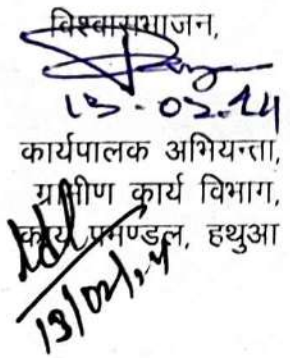 विश्वासभाजन,
13-02-24
कार्यपालक अभियन्ता,
ग्रामीण कार्य विभाग,
कार्य प्रमण्डल, हथुआ
13/02/24